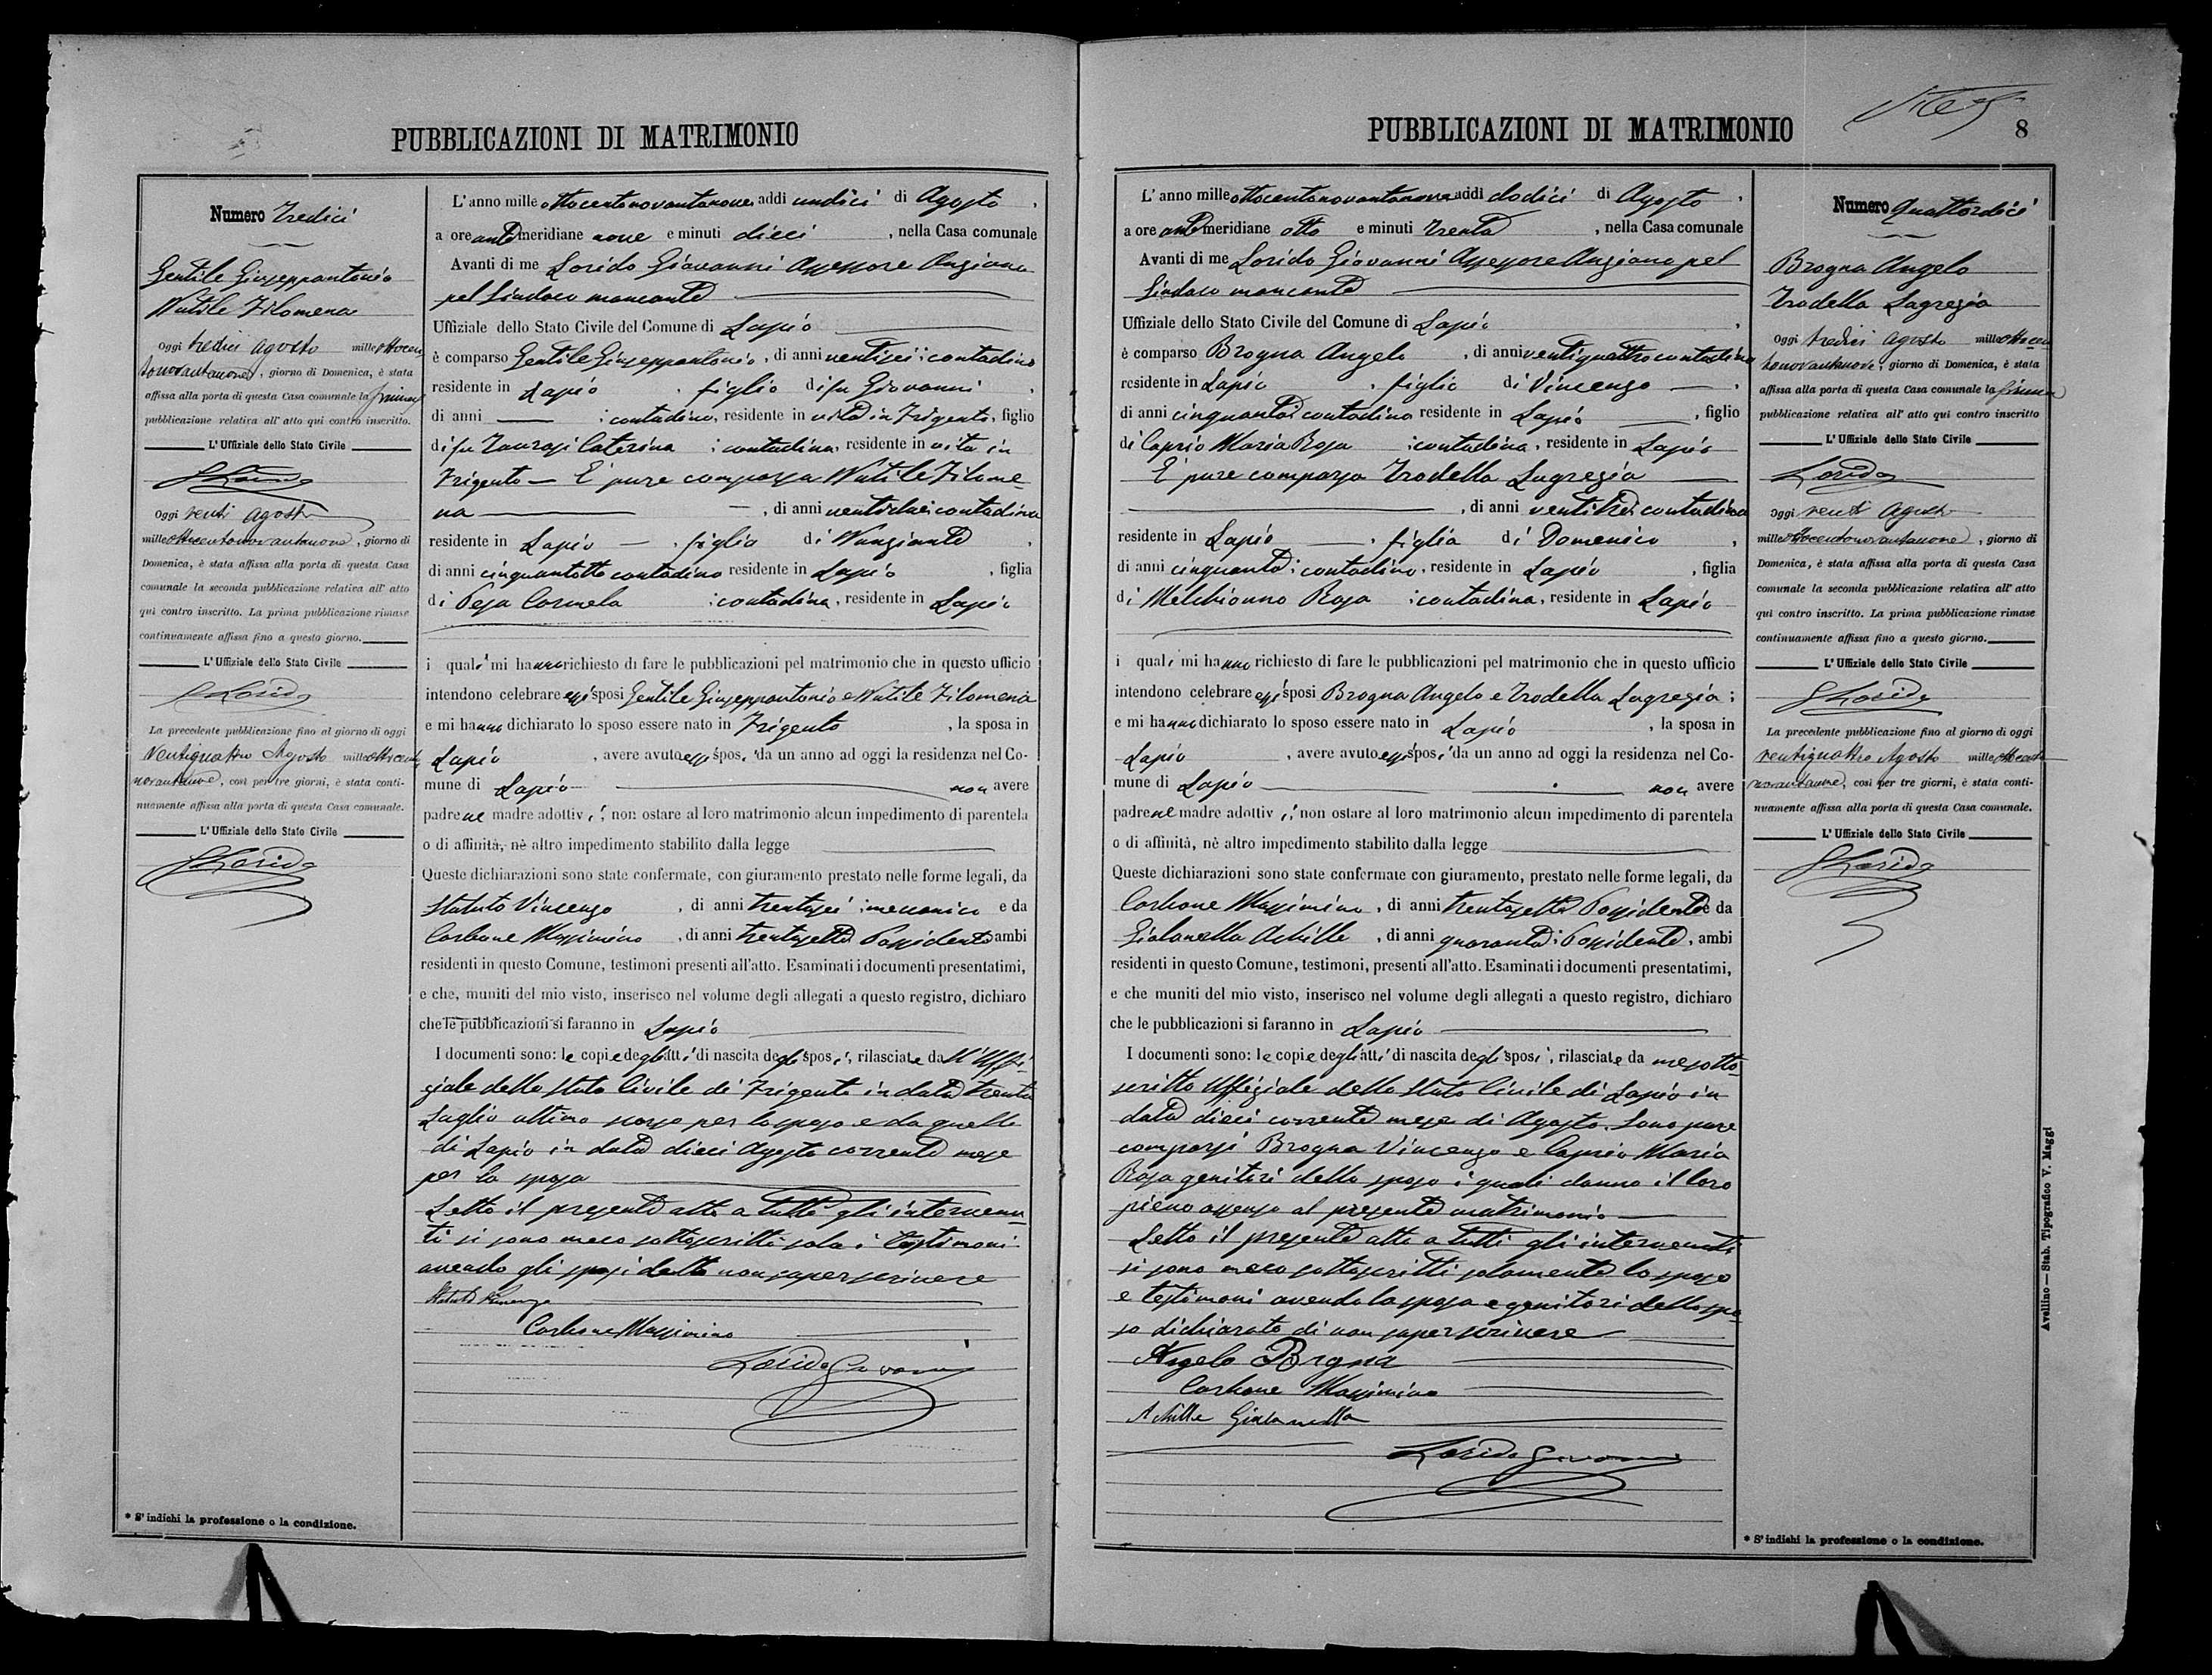 PUBBLICAZIONI DI MATRIMONIO
Numero Tredici
Gentile Giuseppantonio
Nutile Filomena
Oggi tredici agosto milleottocen
tonovantanove, giorno di Domenica, è stata
affissa alla porta di questa Casa comunale la prima
pubblicazione relativa all' atto qui contro inscritto.
L' Uffiziale dello Stato Civile
GLorido
Oggi venti agosto
milleottocentonovantanove, giorno di
Domenica, è stata affissa alla porta di questa Casa
comunale la seconda pubblicazione relativa all' atto
qui contro inscritto. La prima pubblicazione rimase
continuamente affissa fino a questo giorno.
L' Uffiziale dello Stato Civile
GLorido
La precedente pubblicazione fino al giorno di oggi
Ventiquattro Agosto milleottocento
novantanove, così per tre giorni, è stata conti-
nuamente affissa alla porta di questa Casa comunale.
L' Uffiziale dello Stato Civile
GLorido
* S' indichi la professione o la condizione.
L' anno mille ottocentonovantanove addi undici di Agosto,
a ore antimeridiane nove e minuti dieci, nella Casa comunale
Avanti di me Lorido Giovanni Assessore Anziano
pel Sindaco mancante
Uffiziale dello Stato Civile del Comune di Lapio
è comparso Gentile Giuseppantonio, di anni ventisei: contadino
residente in Lapio, figlio di fu Giovanni,
di anni : contadino, residente in vita in Frigento, figlio
di fu Taurasi Caterina : contadina, residente in vita in
Frigento — È pure comparsa Nutile Filome
na , di anni ventidue: contadina
residente in Lapio — , figlia di Nunziante,
di anni cinquantotto contadino residente in Lapio, figlia
di Pesa Carmela : contadina, residente in Lapio
i quali mi hanno richiesto di fare le pubblicazioni pel matrimonio che in questo ufficio
intendono celebrare essi sposi Gentile Giuseppantonio e Nutile Filomena
e mi hanno dichiarato lo sposo essere nato in Frigento, la sposa in
Lapio, avere avuto essi sposi da un anno ad oggi la residenza nel Co-
mune di Lapio non avere
padre ne madre adottivi; non ostare al loro matrimonio alcun impedimento di parentela
o di affinità, nè altro impedimento stabilito dalla legge
Queste dichiarazioni sono state confermate, con giuramento prestato nelle forme legali, da
Statuto Vincenzo, di anni trentasei: meccanico e da
Carbone Massimino, di anni trentasette Possidente ambi
residenti in questo Comune, testimoni presenti all'atto. Esaminati i documenti presentatimi,
e che, muniti del mio visto, inserisco nel volume degli allegati a questo registro, dichiaro
che le pubblicazioni si faranno in Lapio
I documenti sono: le copie degli atti di nascita degli sposi, rilasciate dall' Uffi-
ziale dello Stato Civile di Frigento in data trenta
Luglio ultimo scorso per lo sposo e da quello
di Lapio in data dieci Agosto corrente mese
per la sposa
Letto il presente atto a tutti gli intervenu-
ti si sono meco sottoscritti solo i testimoni
avendo gli sposi detto non saper scrivere
Statuto Vincenzo
Carbone Massimino
Lorido Giovanni
PUBBLICAZIONI DI MATRIMONIO
8
L' anno mille ottocentonovantanove addi dodici di Agosto,
a ore antimeridiane otto e minuti trenta, nella Casa comunale
Avanti di me Lorido Giovanni Assessore Anziano pel
Sindaco mancante
Uffiziale dello Stato Civile del Comune di Lapio,
è comparso Brogna Angelo, di anni ventiquattro contadino
residente in Lapio, figlio di Vincenzo — ,
di anni cinquanta: contadino residente in Lapio, figlio
di Caprio Maria Rosa : contadina, residente in Lapio
È pure comparsa Trodella Lugrezia
, di anni ventitre: contadina
residente in Lapio — , figlia di Domenico,
di anni cinquanta: contadino, residente in Lapio, figlia
di Melchionno Rosa : contadina, residente in Lapio
i quali mi hanno richiesto di fare le pubblicazioni pel matrimonio che in questo ufficio
intendono celebrare essi sposi Brogna Angelo e Trodella Lugrezia;
e mi hanno dichiarato lo sposo essere nato in Lapio, la sposa in
Lapio, avere avuto essi sposi da un anno ad oggi la residenza nel Co-
mune di Lapio non avere
padre ne madre adottivi; non ostare al loro matrimonio alcun impedimento di parentela
o di affinità, nè altro impedimento stabilito dalla legge
Queste dichiarazioni sono state confermate con giuramento, prestato nelle forme legali, da
Carbone Massimino, di anni trentasette Possidente e da
Giolanella Achille, di anni quaranta: Possidente, ambi
residenti in questo Comune, testimoni, presenti all'atto. Esaminati i documenti presentatimi,
e che muniti del mio visto, inserisco nel volume degli allegati a questo registro, dichiaro
che le pubblicazioni si faranno in Lapio
I documenti sono: le copie degli atti di nascita degli sposi, rilasciate da me sotto-
scritto Uffiziale dello Stato Civile di Lapio in
data dieci corrente mese di Agosto. Sono pure
comparsi Brogna Vincenzo e Caprio Maria
Rosa genitori dello sposo i quali danno il loro
pieno assenso al presente matrimonio
Letto il presente atto a tutti gli intervenuti
si sono meco sottoscritti solamente lo sposo
e testimoni avendo la sposa e genitori dello spo-
so dichiarato di non saper scrivere
Angelo Brgna
Carbone Massimino
Achille Giolanella
Lorido Giovanni
Numero Quattordici
Brogna Angelo
Trodella Lugrezia
Oggi tredici Agosto milleottocen
tonovantanove, giorno di Domenica, è stata
affissa alla porta di questa Casa comunale la prima
pubblicazione relativa all' atto qui contro inscritto
L' Uffiziale dello Stato Civile
Lorido
Oggi venti Agosto
milleottocentonovantanove, giorno di
Domenica, è stata affissa alla porta di questa Casa
comunale la seconda pubblicazione relativa all' atto
qui contro inscritto. La prima pubblicazione rimase
continuamente affissa fino a questo giorno.
L' Uffiziale dello Stato Civile
GLorido
La precedente pubblicazione fino al giorno di oggi
ventiquattro Agosto milleottocento
novantanove, così per tre giorni, è stata conti-
nuamente affissa alla porta di questa Casa comunale.
L' Uffiziale dello Stato Civile
GLorido
* S' indichi la professione o la condizione.
Avellino — Stab. Tipografico V. Maggi